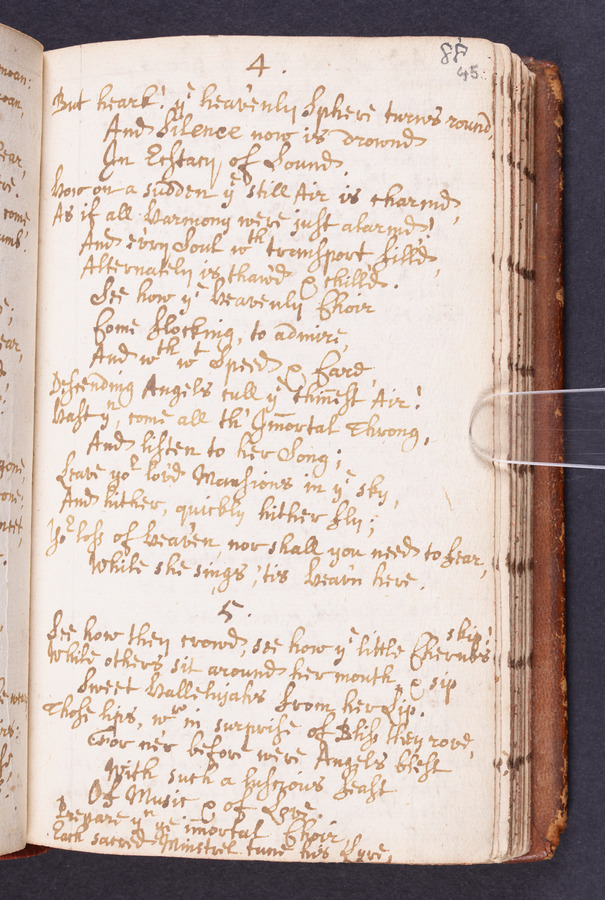 88
45
4.
But heark! ye heavenly Sphere turns round,
And Silence now is drownd
In Ecstacy of Sound.
How on a sudden ye still Air is charmd,
As if all Harmony were just alarmd!
And ev'ry Soul wth transport filld,
Alternately is thaw'd & chill'd.
See how ye Heavenly Choir
Come flocking, to admire,
And wth wt Speed & Care,
Descending Angels cull ye thinest Air!
Hast yn, come all th' Immortal Throng,
And listen to her Song;
Leave yor lov'd Mansions in ye sky,
And hither, quickly hither fly;
Yor loss of Heaven, nor shall you need to fear,
While she sings, 'tis Heav'n here.
5.
See how they crowd, see how ye little Cherubs skip!
While others sit around her mouth, & sip
Sweet Hallelujahs from her Lip.
Those lips, wr in surprise of Bliss they rove,
For ne'r before were Angels blest
With such a luscious feast
Of Music & of Love.
Prepare yn ye immortal Choir,
Each sacred Minstrel tune his Lyre,